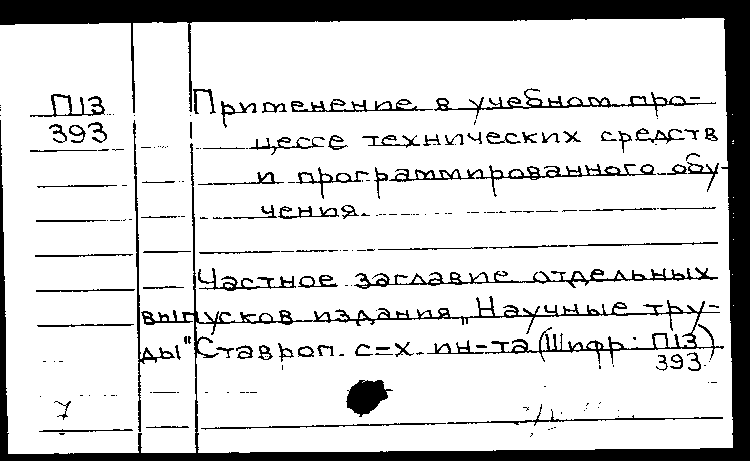 П13 Применение в учебном про-
393 цессе технических средств
и программированного обу-
чения.
Частное заглавие отдельных
выпусков издания „Научные тру-
ды" Ставроп. с-х. ин-та (Шифр: П13
393)
7